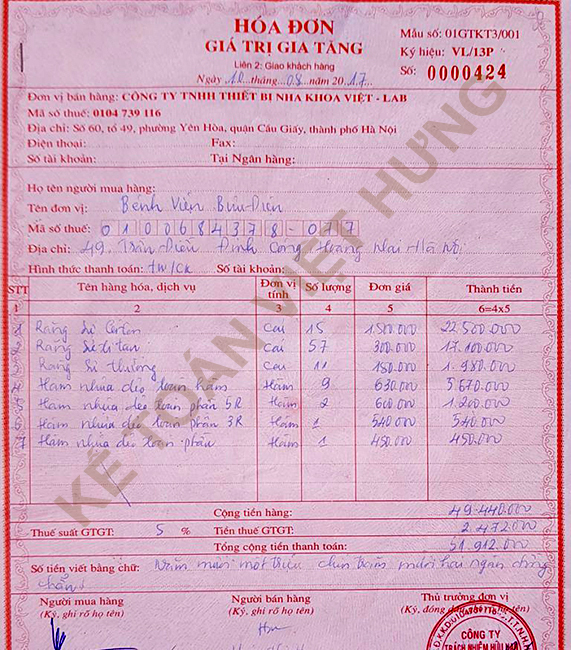 HÓA ĐƠN
GIÁ TRỊ GIA TĂNG
Liên 2: Giao khách hàng
Ngày 10 tháng 08 năm 2017
Mẫu số: 01GTKT3/001
Ký hiệu: VL/13P
Số: 0000424
Đơn vị bán hàng: CÔNG TY TNHH THIẾT BỊ NHA KHOA VIỆT - LAB
Mã số thuế: 0104 739 116
Địa chỉ: Số 60, tổ 49, phường Yên Hòa, quận Cầu Giấy, thành phố Hà Nội
Điện thoại: Fax:
Số tài khoản: Tại Ngân hàng:
Họ tên người mua hàng:
Tên đơn vị: Bệnh Viện Bưu Điện
Mã số thuế: 0100684378-077
Địa chỉ: 49 Trần Điền Định Công Hoàng Mai Hà Nội
Hình thức thanh toán: TM/CK Số tài khoản:
STT Tên hàng hóa, dịch vụ Đơn vị tính Số lượng Đơn giá Thành tiền
1 2 3 4 5 6=4x5
1 Răng sứ Cercon Cái 15 1.500.000 22.500.000
2 Răng sứ titan Cái 57 300.000 17.100.000
3 Răng sứ thường Cái 11 180.000 1.980.000
4 Hàm nhựa dẻo toàn hàm Hàm 9 630.000 5.670.000
5 Hàm nhựa dẻo toàn phần 5R Hàm 2 600.000 1.200.000
6 Hàm nhựa dẻo toàn phần 3R Hàm 1 540.000 540.000
7 Hàm nhựa dẻo toàn phần Hàm 1 450.000 450.000
Cộng tiền hàng: 49.440.000
Thuế suất GTGT: 5 % Tiền thuế GTGT: 2.472.000
Tổng cộng tiền thanh toán: 51.912.000
Số tiền viết bằng chữ: Năm mươi một triệu chín trăm mười hai ngàn đồng
chẵn
Người mua hàng Người bán hàng Thủ trưởng đơn vị
(Ký, ghi rõ họ tên) (Ký, ghi rõ họ tên) (Ký, đóng họ tên)
CÔNG TY
TRÁCH NHIỆM HỮU HẠN
KẾ TOÁN VIỆT HƯNG